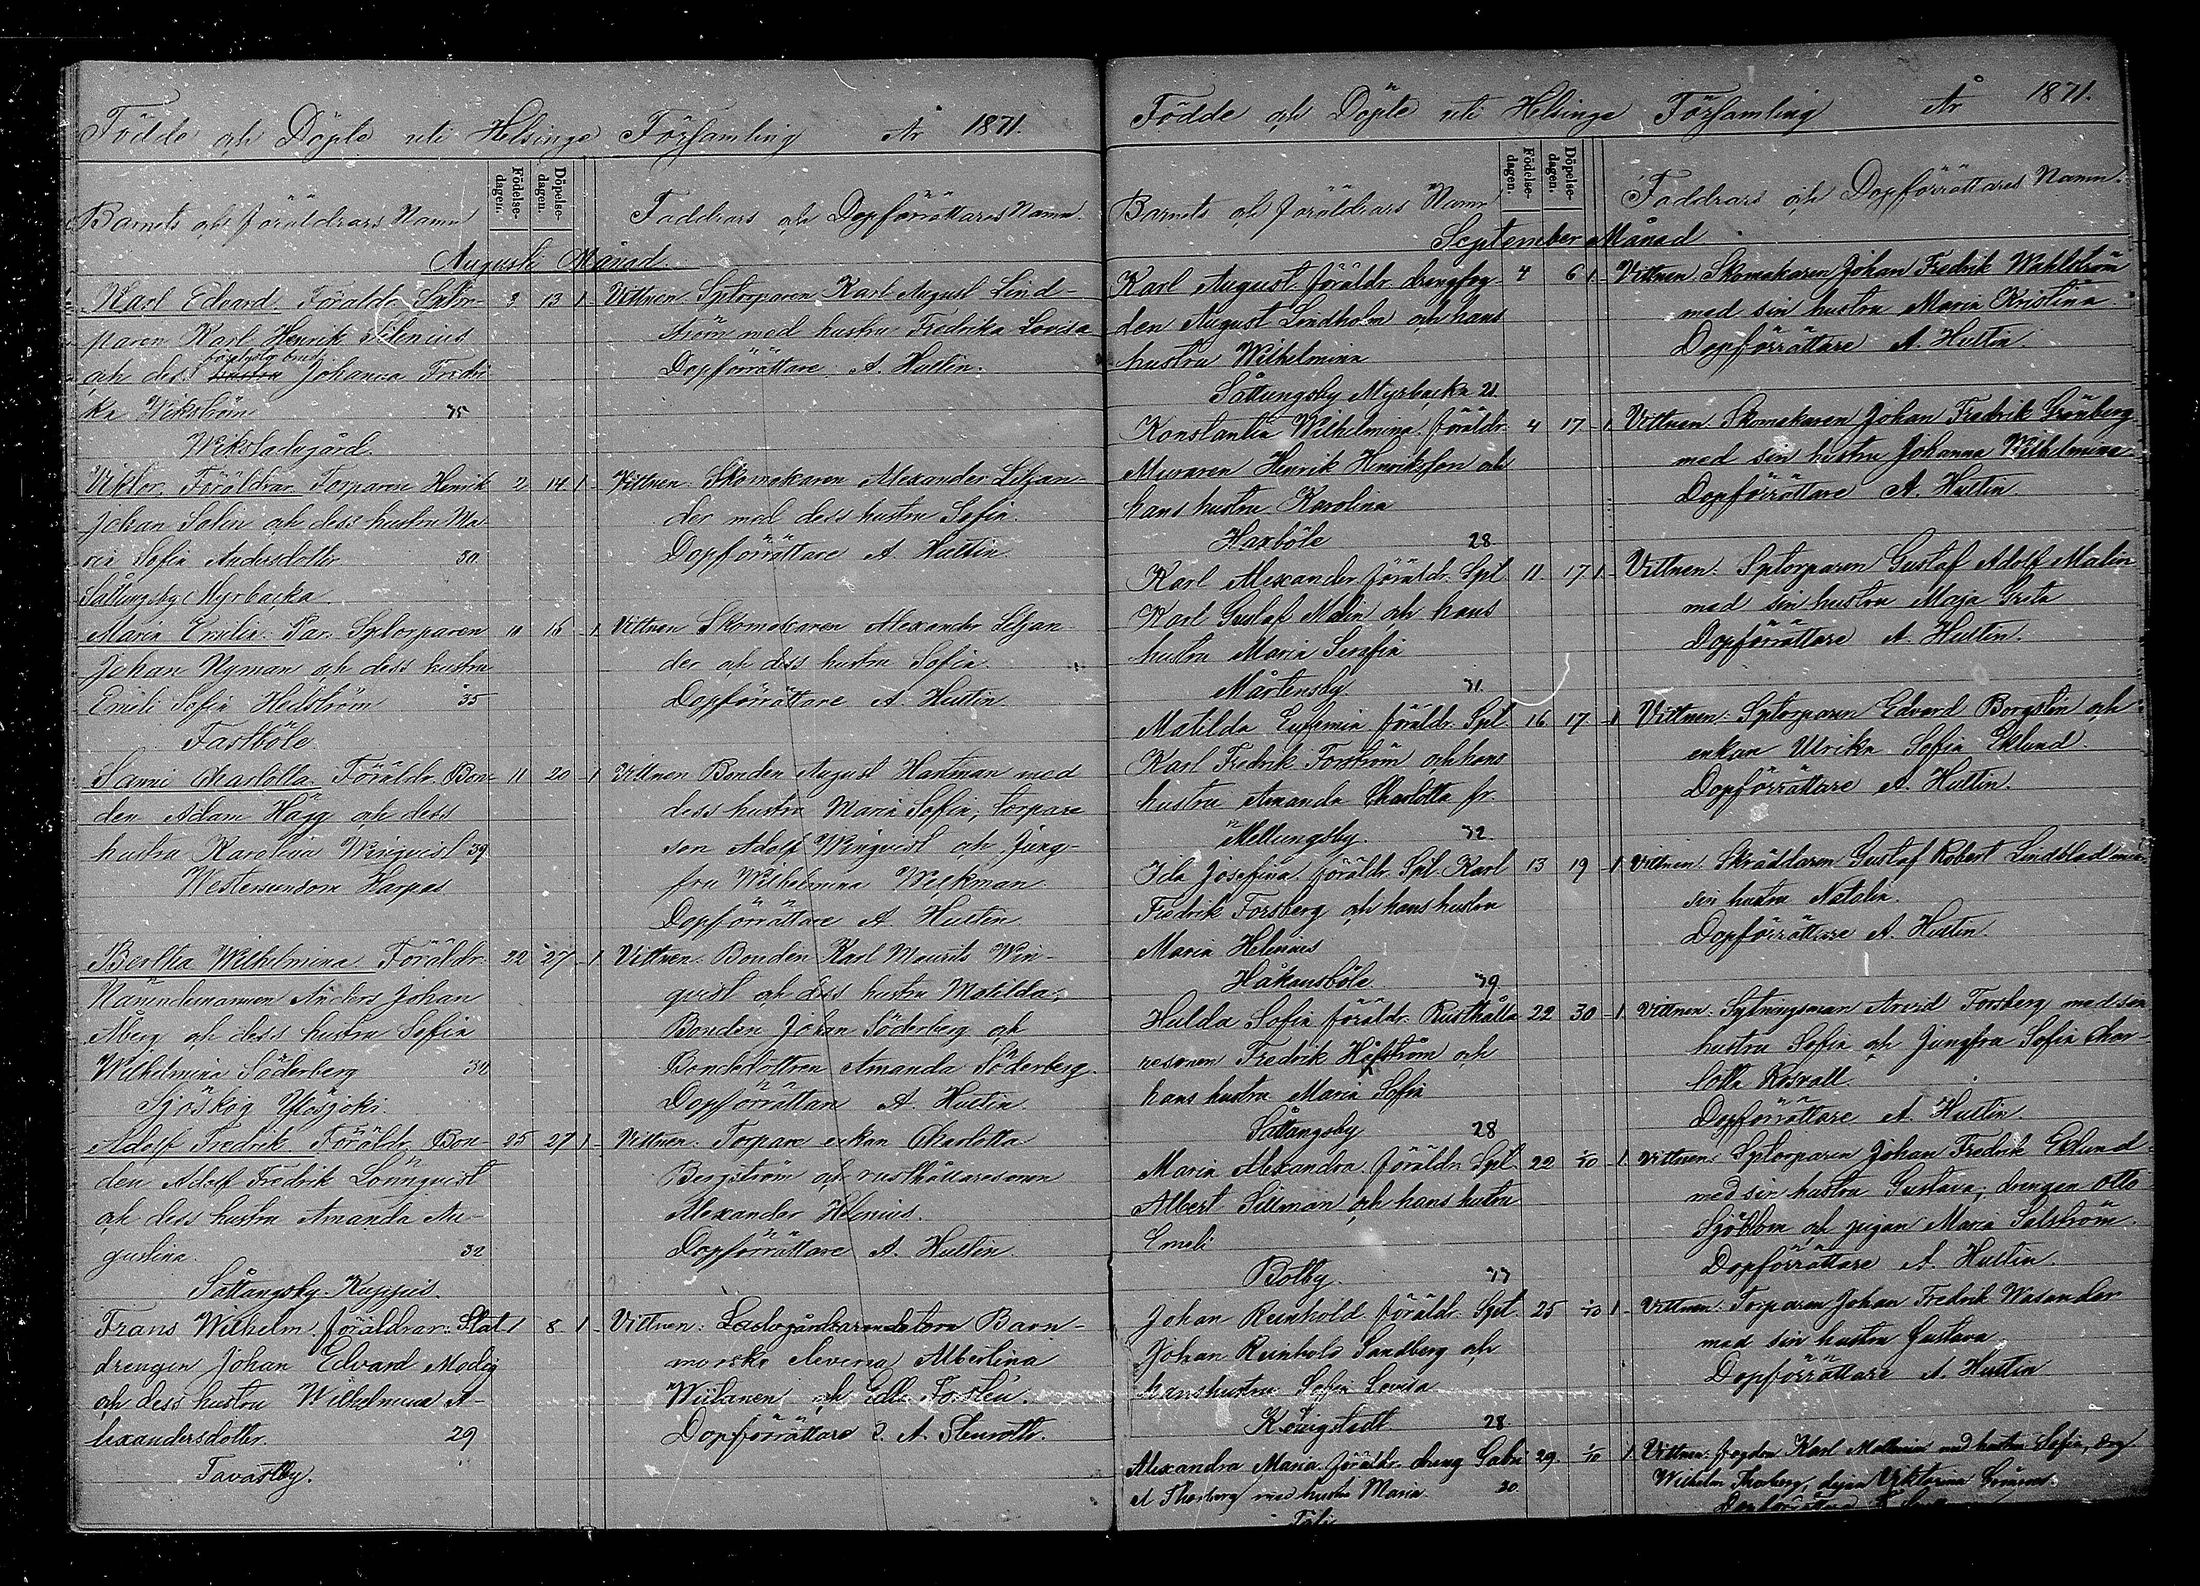 Födde och Döpte uti Helsinge Församling År 1871.
Barnets och föräldrars Namn
Födelse-
dagen.
Döpelse-
dagen.
Faddrars och Dopförrättares Namn.
Augusti Månad
Karl Edvard. Föräldr Sptor- 2 13 1
paren Karl Henrik Silenius
förlofv. brud
och dess hustru Johanna Fredri
ka Wikström 35
Wikstadsgård.
Vittnen Sptorparen Karl August Lind-
ström med hustru Fredrika Lovisa
Dopförrättare A. Hultin.
Viktor. Föräldrar Torparen Henrik 2 14 1
Johan Solin och dess hustru Ma
ria Sofia Andersdotter 30
Sottungsby Myrbacka
Vittnen Skomakaren Alexander Liljan-
der med dess hustru Sofia.
Dopförrättare A. Hultin
Maria Emilia. Par. Sptorparen 11 16 1
Johan Nyman och dess hustru
Emeli Sofia Hedström 35
Fastböle.
Vittnen Skomakaren Alexander Liljan
der och dess hustru Sofia
Dopförrättare A. Hultin
Sanni Charlotta. Föräldr. Bon- 11 20 1
den Adam Hägg och dess
hustru Karolina Winqvist 39
Westersundom Karpas
Vittnen Bonden August Hartman med
dess hustru Maria Sofia, torpare
son Adolf Winqvist och Jung-
fru Wilhelmina Weckman
Dopförrättare A. Hultin
Bertha Wilhelmina Föräldr. 22 27 1
Nämndemannen Anders Johan
Åberg och dess hustru Sofia
Wilhelmina Söderberg 34
Sjöskog Ylösjoki.
Vittnen. Bonden Karl Maurits Win-
qvist och dess hustru Matilda,
Bonden Johan Söderberg och
Bondedottren Amanda Söderberg.
Dopförrättare A. Hultin.
Adolf Fredrik Föräldr Bon- 25 27 1
den Adolf Fredrik Lönnqvist
och dess hustru Amanda Au-
gustina. 32
Sottungsby Kuppis.
Vittnen. Torpare enkan Charlotta
Bergström och rusthållaresonen
Alexander Helenius.
Dopförrättare A. Hultin
Frans Wilhelm föräldrar: Stat 1 8 1
drengen Johan Edvard Modig
och dess hustru Wilhelmina A-
lexandersdotter. 29
Tavastby.
Vittnen: Barn-
morske eleverna Albertina
Wiilanen och Edla Forsten.
Dopförrättare A. Stenroth.
Födde och Döpte uti Helsinge Församling År 1871.
Barnets och föräldrars Namn
Födelse-
dagen.
Döpelse-
dagen.
Faddrars och Dopförrättares Namn.
September Månad
Karl August föräldr. drengfog- 4 6 1
den August Lindholm och hans
hustru Wilhelmina
Sottungsby Myrbacka 21
Vittnen Skomakaren Johan Fredrik Wahlström
med sin hustru Maria Kristina
Dopförrättare A. Hultin
Konstantia Wilhelmina föräldr. 4 17 1
Muraren Henrik Henriksson och
hans hustru Karolina
Haxböle 28
Vittnen Skomakaren Johan Fredrik Grönberg
med sin hustru Johanna Wilhelmina
Dopförrättare A. Hultin
Karl Alexander föräldr. Spt 11 17 1
Karl Gustaf Malin och hans
hustru Maria Serafia
Mårtensby 31
Vittnen. Sptorparen Gustaf Adolf Malin
med sin hustru Maja Greta
Dopförrättare A. Hultin.
Matilda Eufemia föräldr. Spt 16 17 1
Karl Fredrik Forström och hans
hustru Amanda Charlotta fr.
Mellungsby. 32
Vittnen. Sptorparen Edvard Borgsten och
enkan Ulrika Sofia Eklund.
Dopförrättare A. Hultin.
Ida Josefina föräldr. Spt. Karl 13 19 1
Fredrik Forsberg och hans hustru
Maria Helenius
Håkansböle 39
Vittnen. Skräddaren Gustaf Robert Lindblad med
sin hustru Natalia.
Dopförrättare A. Hultin
Hulda Sofia föräldr. Rusthålla 22 30 1
resonen Fredrik Höfström och
hans hustru Maria Sofia
Sottungsby 28
Vittnen. Sytningsman Arvid Forsberg med sin
hustru Sofia och Jungfru Sofia Char-
lotta Rosvall
Dopförrättare A. Hultin
Maria Alexandra föräldr. Spt 22 1/10 1
Albert Sillman och hans hustru
Emeli
Botby 33
Vittnen. Sptorparen Johan Fredrik Eklund
med sin hustru Gustava, drengen Otto
Sjöblom och pigan Maria Salström.
Dopförrättare A. Hultin.
Johan Reinhold föräldr. Spt. 25 1/10 1
Johan Reinhold Sandberg och
hans hustru Sofia Lovisa
Königstedt 28
Vittnen. Torparen Johan Fredrik Wasander
med sin hustru Gustava
Dopförrättare A. Hultin
Alexandra Maria föräldr. dreng Gabri 29 1/10 1
el Thorberg med hustru Maria 30
Vittnen. fogden Karl Malmin med hustru Sofia, drg
Wilhelm Thorberg, pigan Viktorina
Dopförrättare